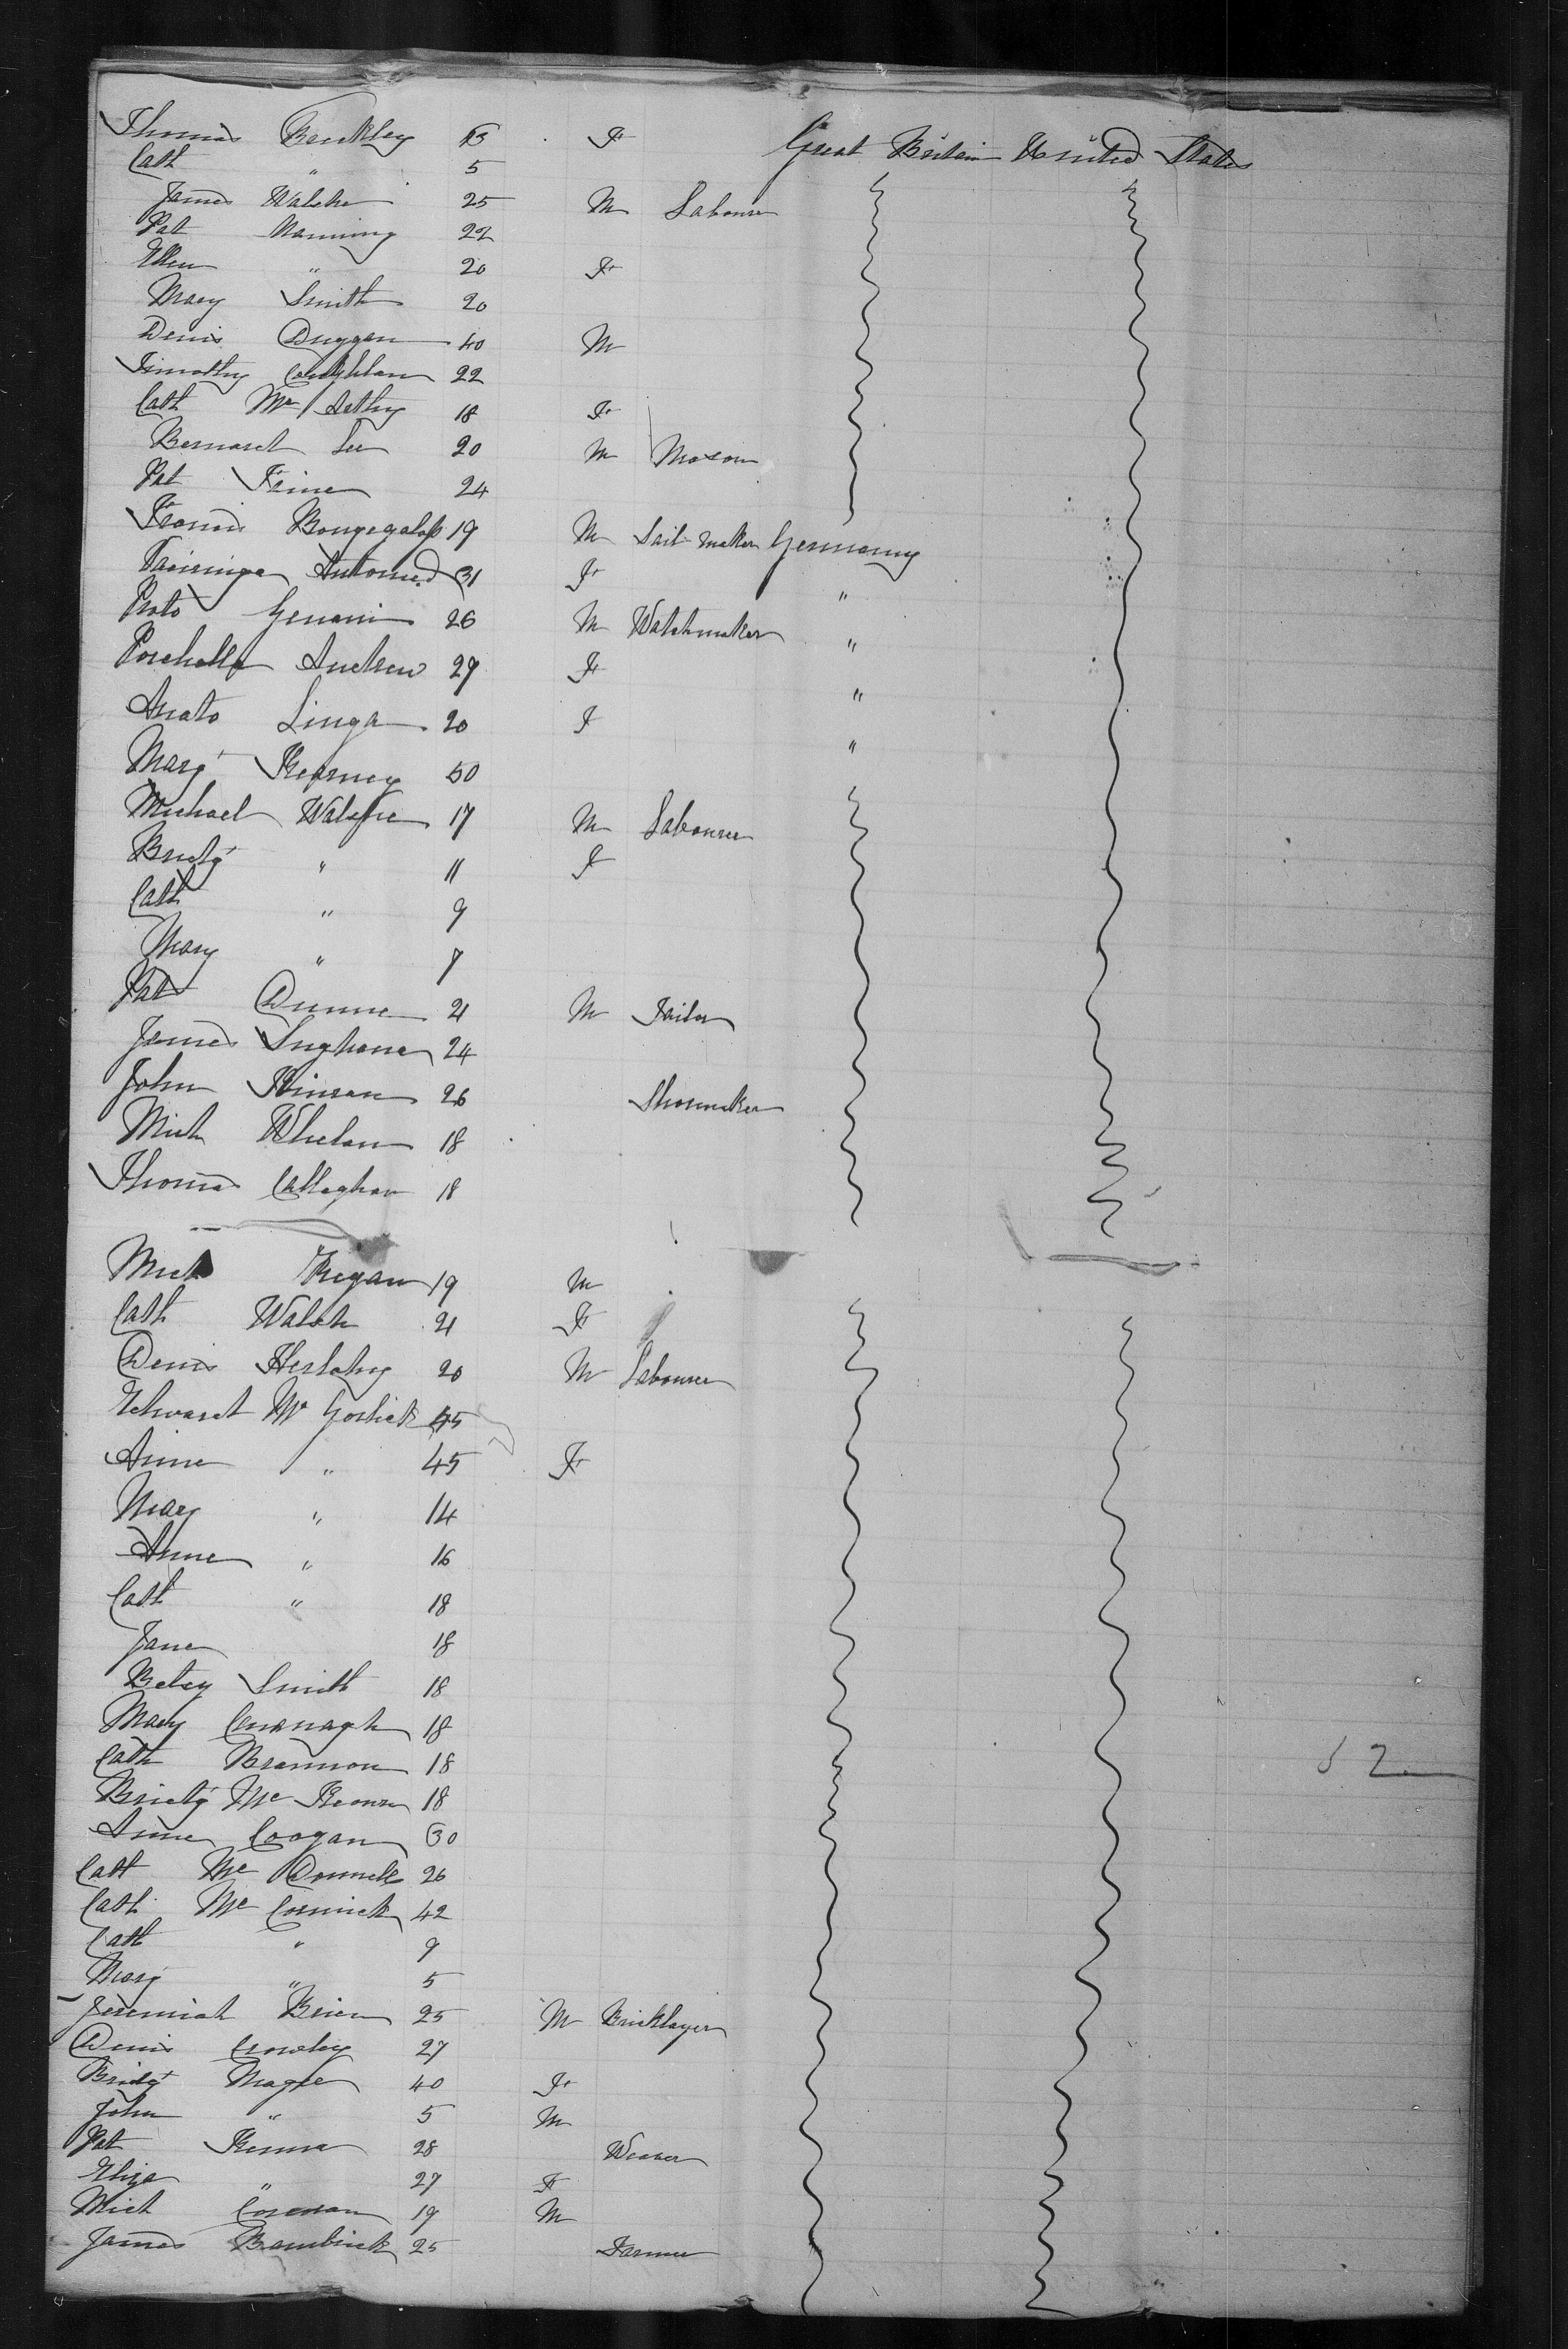 Thomas Buckley 13 F Great Britain United States
Cath " 5
James Walshe 25 M Labourer
Pat Manning 22
Ellen " 20 F
Mary Smith 20
Denis Duggan 40 M
Timothy Coughlan 22
Cath Mc 18 F
Bernard Lee 20 M Mason
Pat 24
Francis 19 M Sail maker Germany
31 F "
Proto 26 M Watchmaker "
Andrew 29 F "
Linga 20 F "
Marg Kearney 50
Michael Walshe 17 M Labourer
Bridg " 11 F
Cath " 9
Mary " 7
Pat Dunne 21 M Tailor
James 24
John Kinsan 26 Shoemaker
Mich Whelan 18
Thomas Callaghan 18
Mich Keegan 19 M
Cath Walsh 21 F
Denis Herlohy 20 M Labourer
Edward Mc 45
Anne " 45 F
Mary " 14
Anne " 16
Cath " 18
Jane 18
Betsy Smith 18
Mary Cavanagh 18
Cath Brannon 18
Bridg Mc Keown 18
Anne Coogan 30
Cath Mc Donnell 26
Cath Mc Cormick 42
Cath " 9
Marg " 5
Jeremiah Brien 25 M Bricklayer
Denis Crowley 27
Bridgt Magee 40 F
John " 5 M
Pat Kenna 28 Weaver
Eliza " 27 F
Mich Corcoran 19 M
James Bambrick 25 Farmer